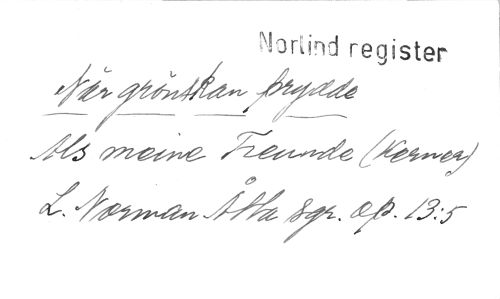 Norlind register
När grönskan prydde
Als meine Freunde (Kerner)
L. Norman Åtta sgr. op. 13:5